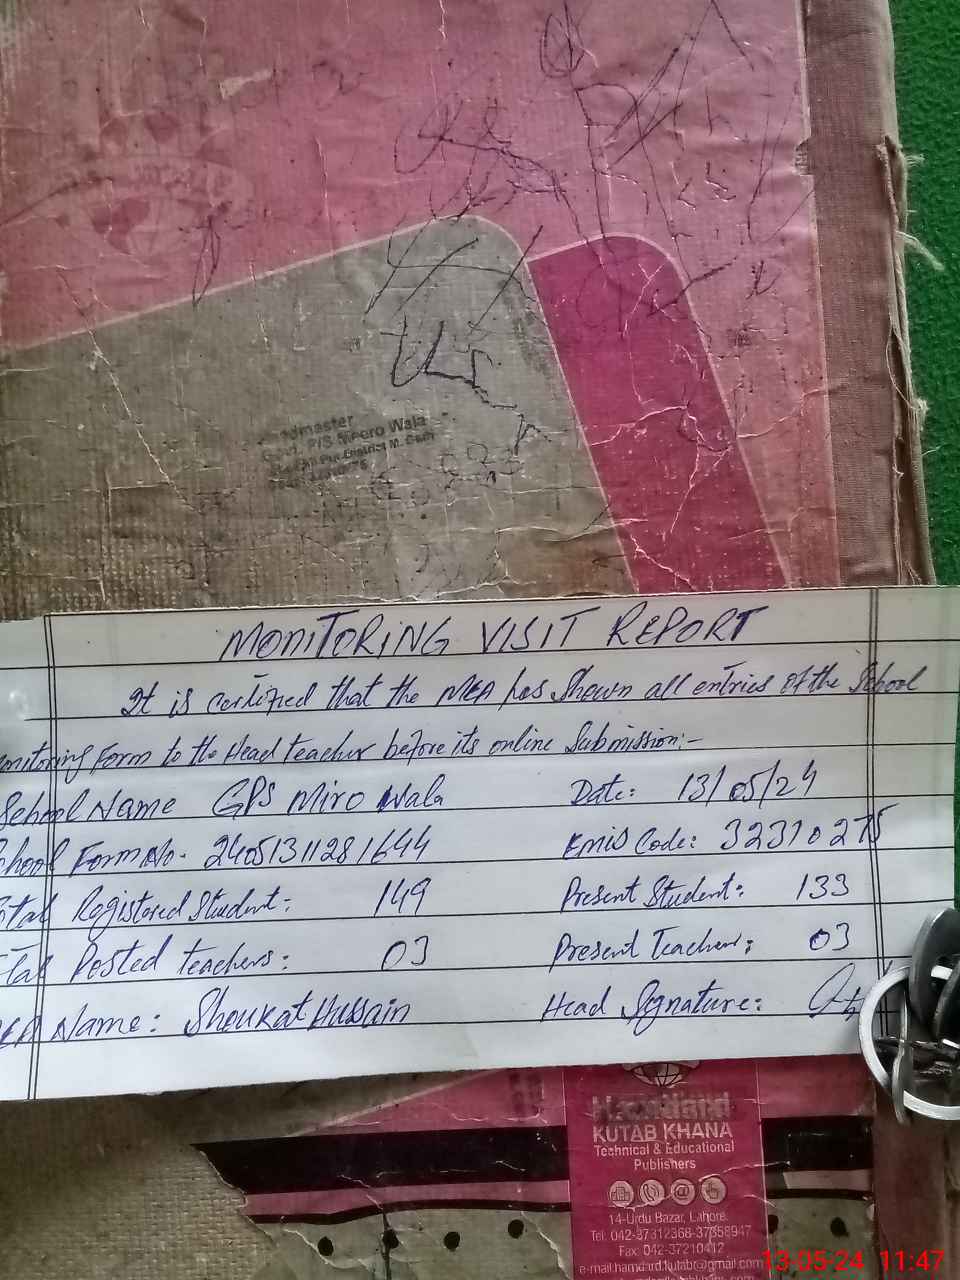 Headmaster
Govt. P/S Meero Wala
District M. Garh
MONITORING VISIT REPORT
It is certified that the MEA has Shown all entries of the School
onitoring Form to the Head teacher before its online Submission:-
School Name GPS Miro Wala Date: 13/05/24
chool Form No. 24051311281644 Emis Code: 32310275
otal Registered Student: 149 Present Student: 133
tal Posted teachers: 03 Present Teacher: 03
EA Name: Shoukat Hussain Head Signature:
Hamdard
KUTAB KHANA
Technical & Educational
Publishers
14-Urdu Bazar, Lahore.
Tel: 042-37312368-37358947
Fax: 042-37210412
e-mail:hamdard.kutab@gmail.com
13-05-24 11:47